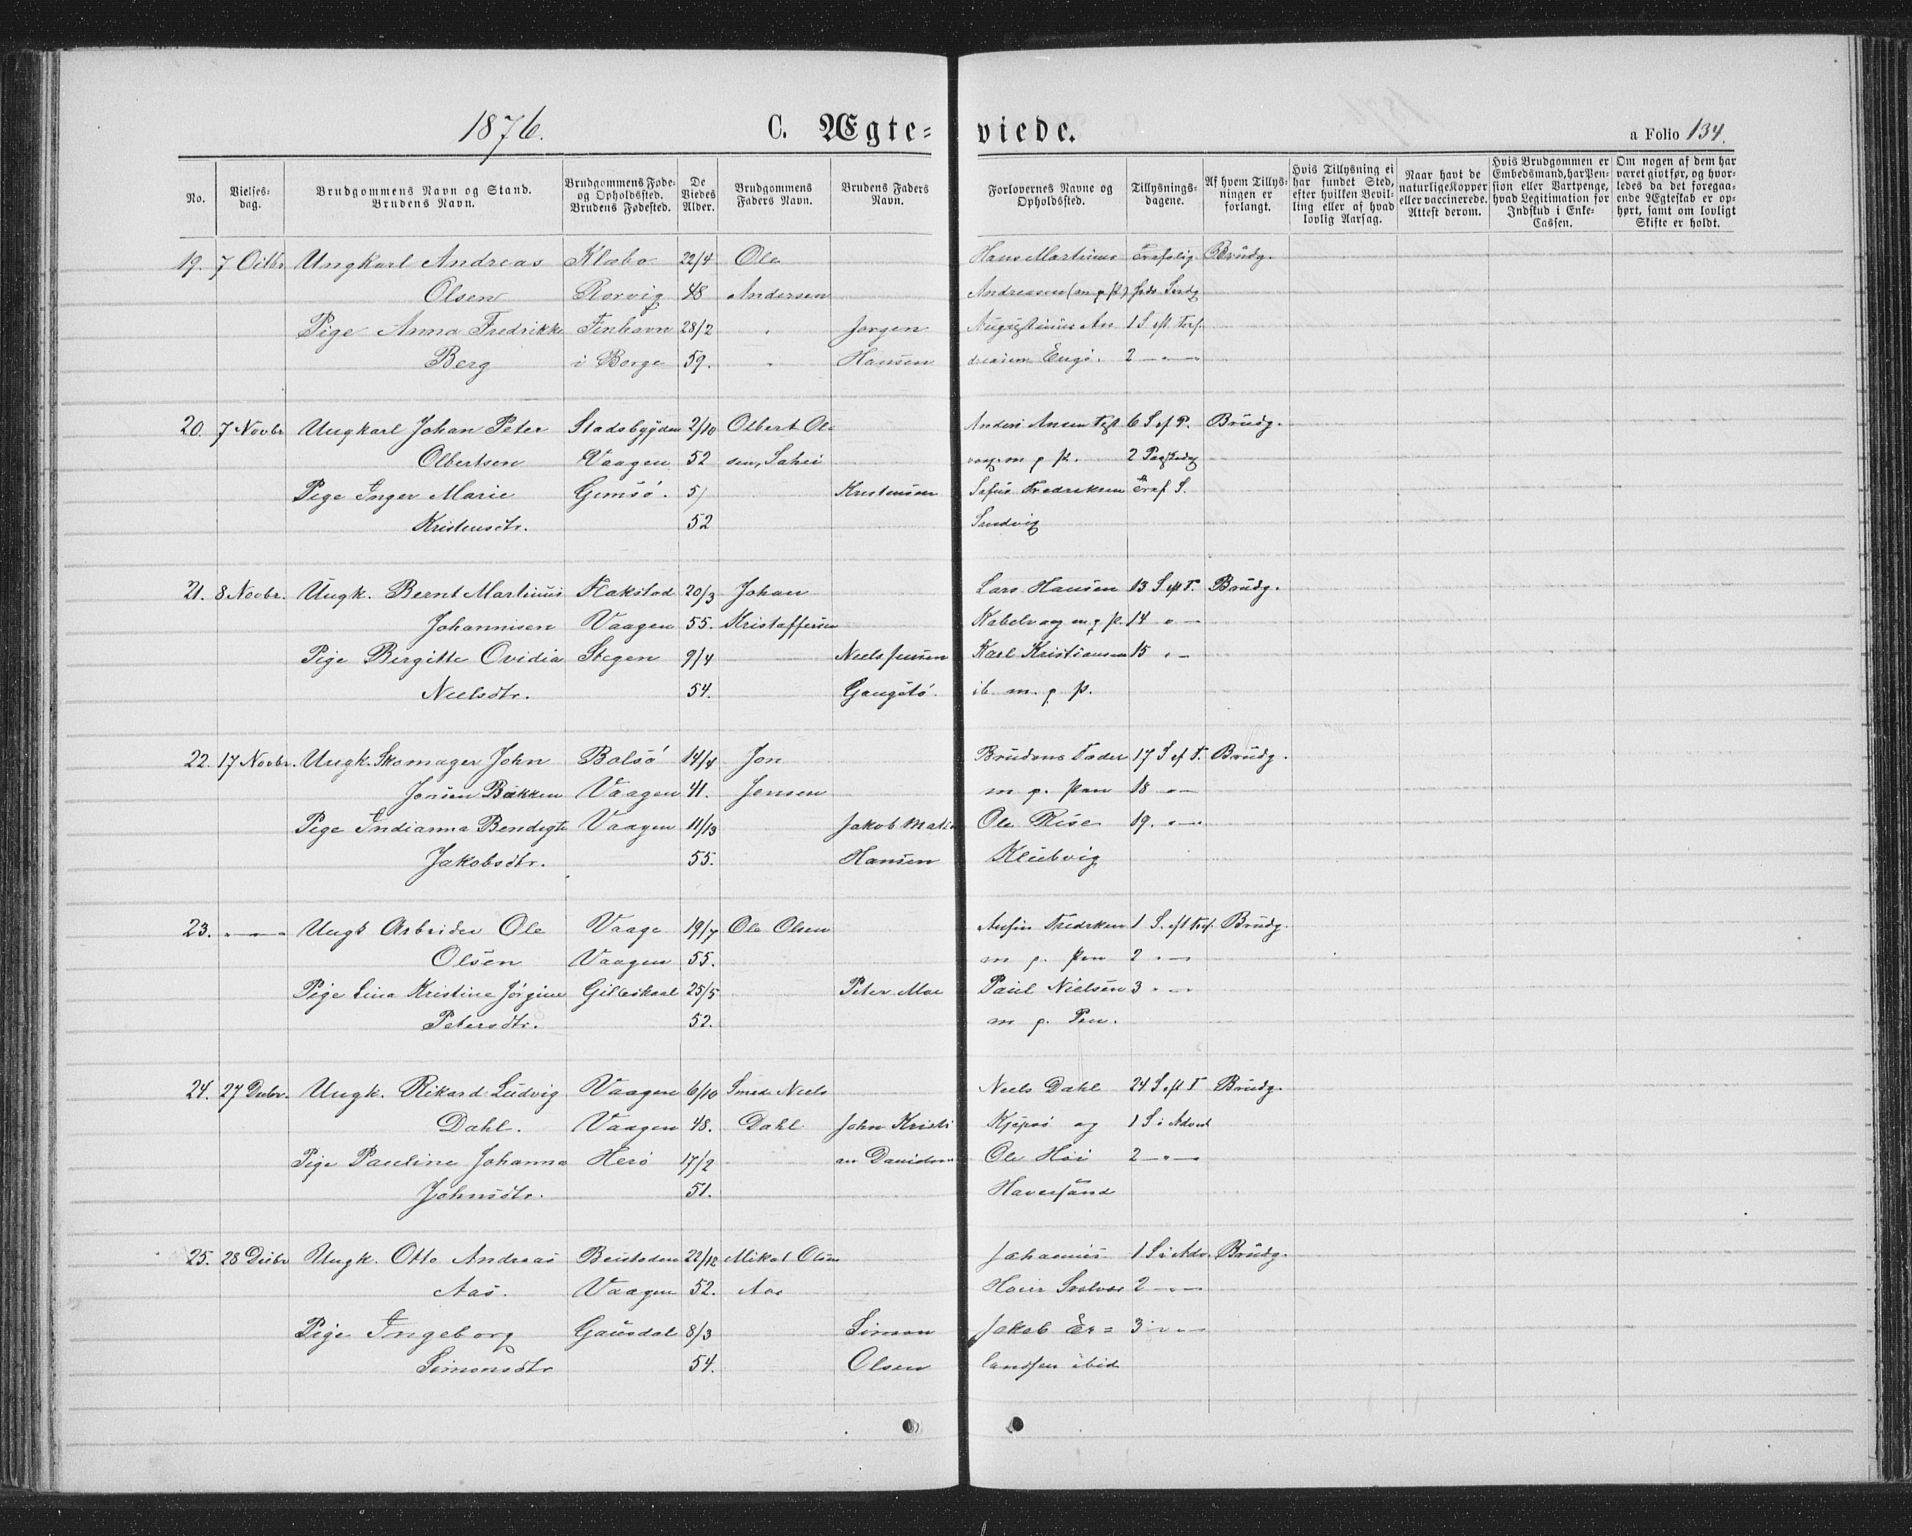 1876.
C. Ægte-
viede.
a Folio 134.
No.
Vielses-
dag.
Brudgommens Navn og Stand.
Brudens Navn.
Brudgommens Føde-
og Opholdssted.
Brudens Fødested.
De
Viedes
Alder.
Brudgommens
Faders Navn.
Brudens Faders
Navn.
Forlovernes Navne og
Opholdssted.
Tillysnings-
dagene.
Af hvem Tillys-
ningen er
forlangt.
Hvis Tillysning ei
har fundet Sted,
efter hvilken Bevil-
ling eller af hvad
lovlig Aarsag.
Naar havt de
naturlige Kopper
eller vaccinerede.
Attest derom.
Hvis Brudgommen er
Embedsmand, har Pen-
sion eller Vartpenge,
hvad Legitimation for
Indskud i Enke-
Cassen.
Om nogen af dem har
været givtfør, og hvor-
ledes da det foregaa-
ende Ægteskab er op-
hørt, samt om lovligt
Skifte er holdt.
19. 7 Octbr Ungkarl Andreas Klæbo 22/4 Ole Hans Martinus Brudg.
Olsen Rorvig 48 Andersen Andreasen (m. p. P.)
Pige Anna Fredrikke 28/2 " Jørgen Augustinus An
Berg i Borge 59. " Hansen dreasen Engø. 2 — " —
20. 7 Novbr Ungkarl Johan Peter Stadsbygden 2/10 Olbert Ol Anders 6 S. ef P. Brudg.
Olbertsen Vaagen 52 sen, m. p. P. 2
Pige Inger Marie Gimsø. 5/ Kristensen Fredriksen
Kristensdtr. 52 Sandvig
21. 8 Novbr. Ungk. Bernt Martinus Flakstad 20/3 Johan Lars Hansen 13 S. eft T. Brudg.
Johannisen Vaagen 55. Kristaffersen Kabelvaag m. p. P. 14 " —
Pige Bergitte Ovidia Stegen 9/4 Niels Jensen Karl Kristiansen 15 " —
Nielsdtr. 54. ib m. p. P.
22. 17 Novbr. Ungk. Skomager John Bolsø 14/4 Jon Brudens Fader 17 S. ef T. Brudg.
Jonsen Bakken Vaagen 41. Jensen m. p. Pen 18 " —
Pige Indianna Bendigte Vaagen 11/13 Jakob Mati Ole Rise 19. " —
Jakobsdtr. 55. Hansen
23. " — " — Ungk Arbeider Ole Vaage 19/7 Ole Olsen 1 S. eft Brudg.
Olsen Vaagen 55. m. p. Pen 2 " —
Pige Lina Kristine Jørgine Gilleskaal 25/5 Peter Moe Paul Nielsen 3 " —
Petersdtr. 52. m. p. Pen.
24. 27 Decbr. Ungk. Rikard Ludvig Vaagen 6/10 Smed Niels Niels Dahl 24 S. eft T Brudg.
Dahl. Vaagen 48. Dahl John Kristi og 1 S i Advent
Pige Pauline Johanna Herø 17/2 an Davidsen Ole 2 — " —
Johnsdtr. 51.
25. 28 Decbr Ungk. Otto Andreas Beitstaden 22/12 Mikal Olsen Johannes 1 S i Adv. Brudg.
Aas. Vaagen 52. Aas 2 — " —
Pige Ingeborg Gausdal 8/3 Simon Jakob Er= 3 " —
Simonsdtr 54. Olsen landsen ibid